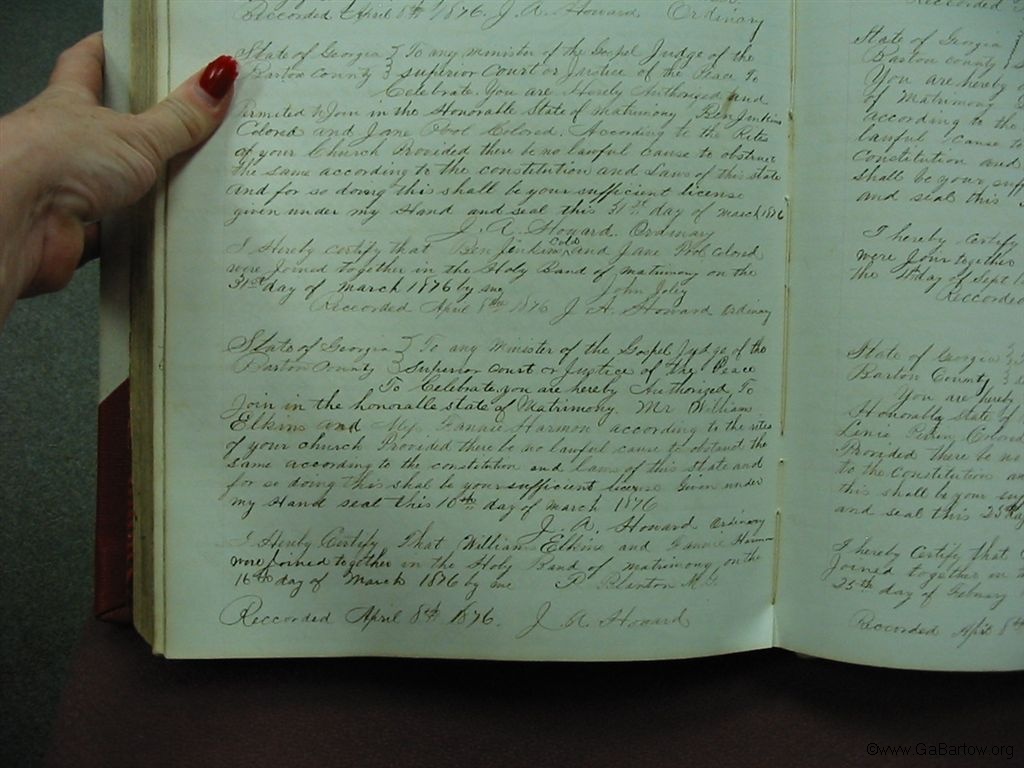 Reccorded April 8th 1876. J. A. Howard Ordinary
State of Georgia } To any minister of the Gospel Judge of the
Bartow County } Superior Court or Justice of the Peace To
Celebrate You are Hereby Authorized and
Permited to Join in the Honorable State of Matrimony Ben Jenkins
Colored and Jane Pool Colored. According to the Rites
of your Church Provided there be no lawful cause to obstruct
the same according to the constitution and Laws of this state
and for so doing this shall be your sufficient license
given under my Hand and seal this 31st day of march 1876
J. A. Howard. Ordinary
I Hereby certify that Ben Jenkins Cold and Jane Pool Colored
were Joined together in the Holy Band of matrimony on the
31st day of March 1876 by me John
Reccorded April 8th 1876 J A. Howard Ordinary
State of Georgia } To any Minister of the Gospel Judge of the
Bartow County } Superior Court or Justice of the Peace
To Celebrate you are hereby Authorized To
Join in the honorable state of Matrimony. Mr William
Elkins and Fannie Harmon according to the rites
of your church Provided there be no lawful cause to obstruct the
same according to the constitution and laws of this state and
for so doing this shal be your sufficient license Given under
my Hand seal this 10th day of march 1876
J. A. Howard Ordinary
I Hereby Certify That William Elkins and Fannie Harmon
were Joined together in the Holy Band of matrimony on the
16th day of March 1876 by me P. Blanton M. G.
Reccorded April 8th 1876. J A Howard
Recorded
State of Georgia
Bartow County
You are hereby
of Matrimony
according to the
lawful Cause to
Constitution and
shall be your suff
and seal this
I hereby Certify
were Join together
the day of Sept
Reccorded
State of Georgia
Bartow County
You are hereby
Honorable state of
Colored
Provided there be no
to the Constitution
this shall be your suf
and seal this 25th
I hereby Certify that
Joined together in
25th day of Febuary
Reccorded April 8th
©www.GaBartow.org